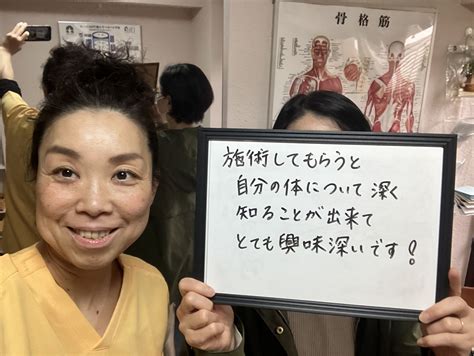 骨格筋
施術してもらうと
自分の体について深く
知ることが出来て
とても興味深いです！